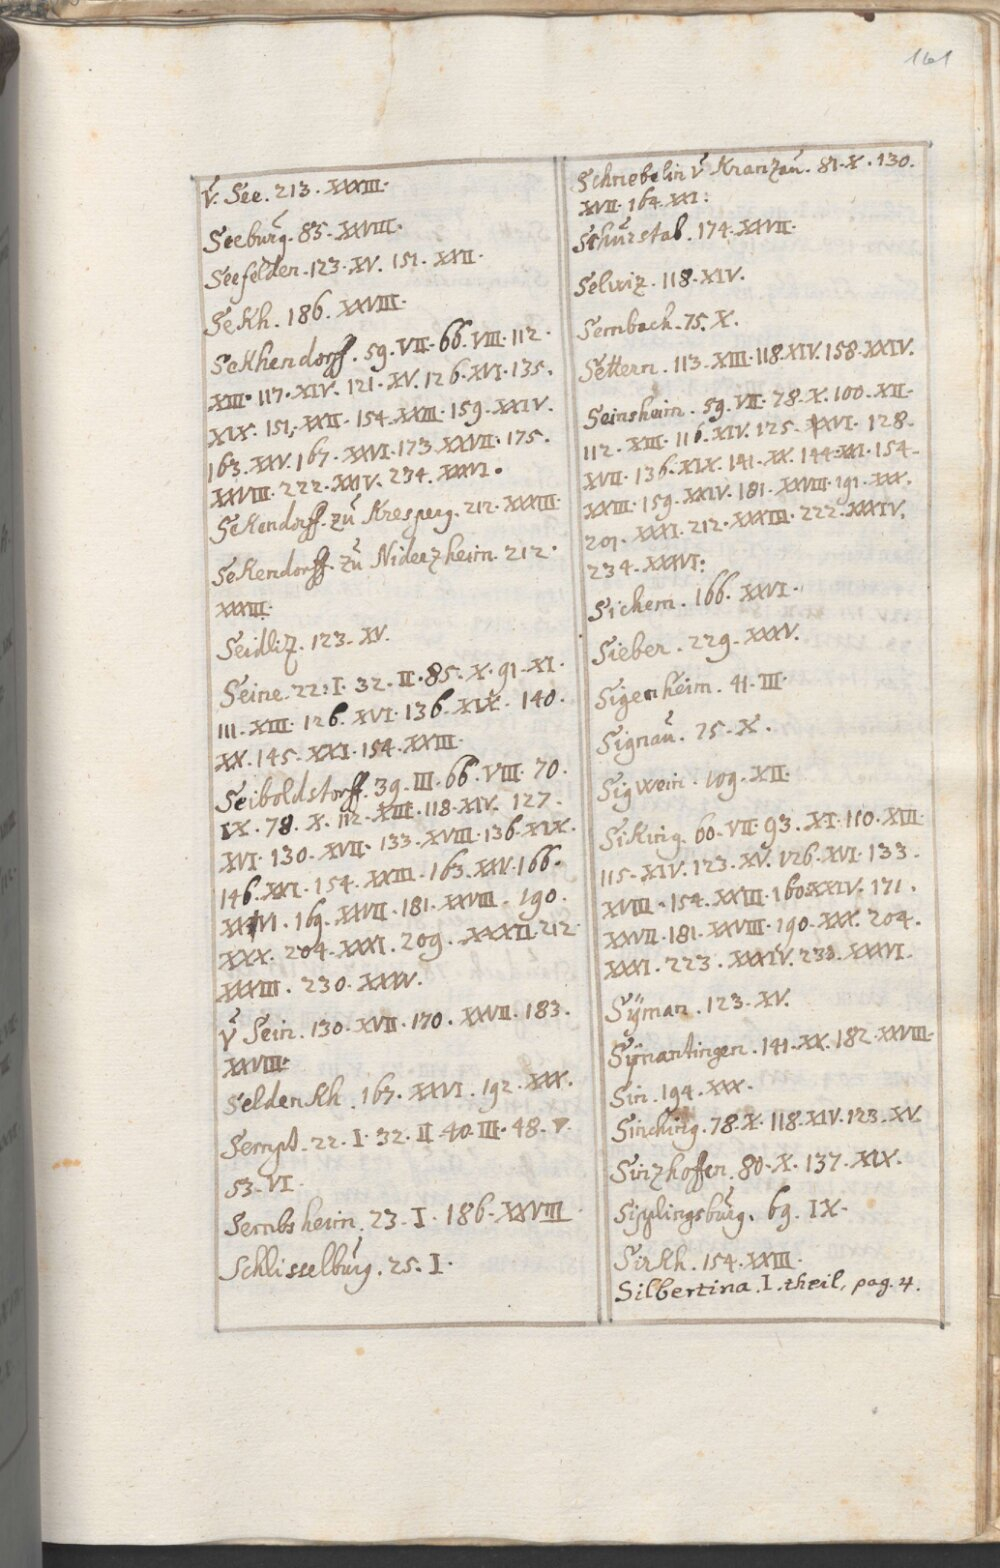 161
v̆. See. 213. XXXIII.
Seebŭrg. 85. XXVIII.
Seefelden. 123. XV. 151. XXII.
Sekh. 186. XXVIII.
Sekhendorff. 59. VII. 66. VIII. 112.
XIII. 117. XIV. 121. XV. 126. XVI. 135.
XIX. 151. XXII. 154. XXIII. 159. XXIV.
163. XXV. 167. XXVI. 173. XXVII. 175.
XXVIII. 222. XXIV. 234. XXXVI.
Sekendorff. zŭ Kresperg. 212. XXXIII.
Sekendorff. zŭ Niderzheim. 212.
XXXIII.
Seidliz. 123. XV.
Seine. 22. I. 32. II. 85. X. 91. XI.
111. XIII. 126. XVI. 136. XIX. 140.
XX. 145. XXI. 154. XXIII.
Seiboldstorff. 39. III. 66. VIII. 70.
IX. 78. X. 112. XIII. 118. XIV. 127.
XVI. 130. XVII. 133. XVIII. 136. XIX.
146. XXI. 154. XXIII. 163. XXV. 166.
XXVI. 169. XXVII. 181. XXVIII. 190.
XXX. 204. XXXI. 209. XXXII. 212
XXXIII. 230. XXXV.
v̆ Sein. 130. XVII. 170. XXVII. 183.
XXVIII.
Seldenkh. 167. XXVI. 192. XXX.
Sempt. 22. I. 32. II. 40. III. 48. V.
53. VI.
Sernbsheim. 23. I. 186. XXVIII
Schlisselbŭrg. 25. I.
Schriebelin v̆ Kranzaŭ. 81. X. 130.
XVII. 164. XXI:
Schŭrstab. 174. XXVII.
Selwiz. 118. XIV.
Sernbach. 75. X.
Settern. 113. XIII. 118. XIV. 158. XXIV.
Seinsheim. 59. VII. 78. X. 100. XII.
112. XIII. 116. XIV. 125. XVI. 128.
XVII. 136. XIX. 141. XX. 144. XXI. 154.
XXIII. 159. XXIV. 181. XXVIII. 191. XXX.
201. XXXI. 212. XXXIII. 222. XXXIV.
234. XXXVI:
Sichem. 166. XXVI.
Sieber. 229. XXXV.
Sigenheim. 41. III.
Signaŭ. 75. X.
Sigwein. 109. XII.
Siking. 60. VII. 93. XI. 110. XIII
115. XIV. 123. XV. 126. XVI. 133.
XVIII. 154. XXIII. 160. XXIV. 171.
XXVII. 181. XXVIII. 190. XXX. 204.
XXXI. 223. XXXIV. 233. XXXVI.
Sÿman. 123. XV.
Sÿnantingen. 141. XX. 182. XXVIII.
Sin. 194. XXX.
Sinching. 78. X. 118. XIV. 123. XV.
Sinzhoffen. 80. X. 137. XIX.
Sipplingsbŭrg. 69. IX.
Sirkh. 154. XXIII.
Silbertina. I. theil, pag. 4.